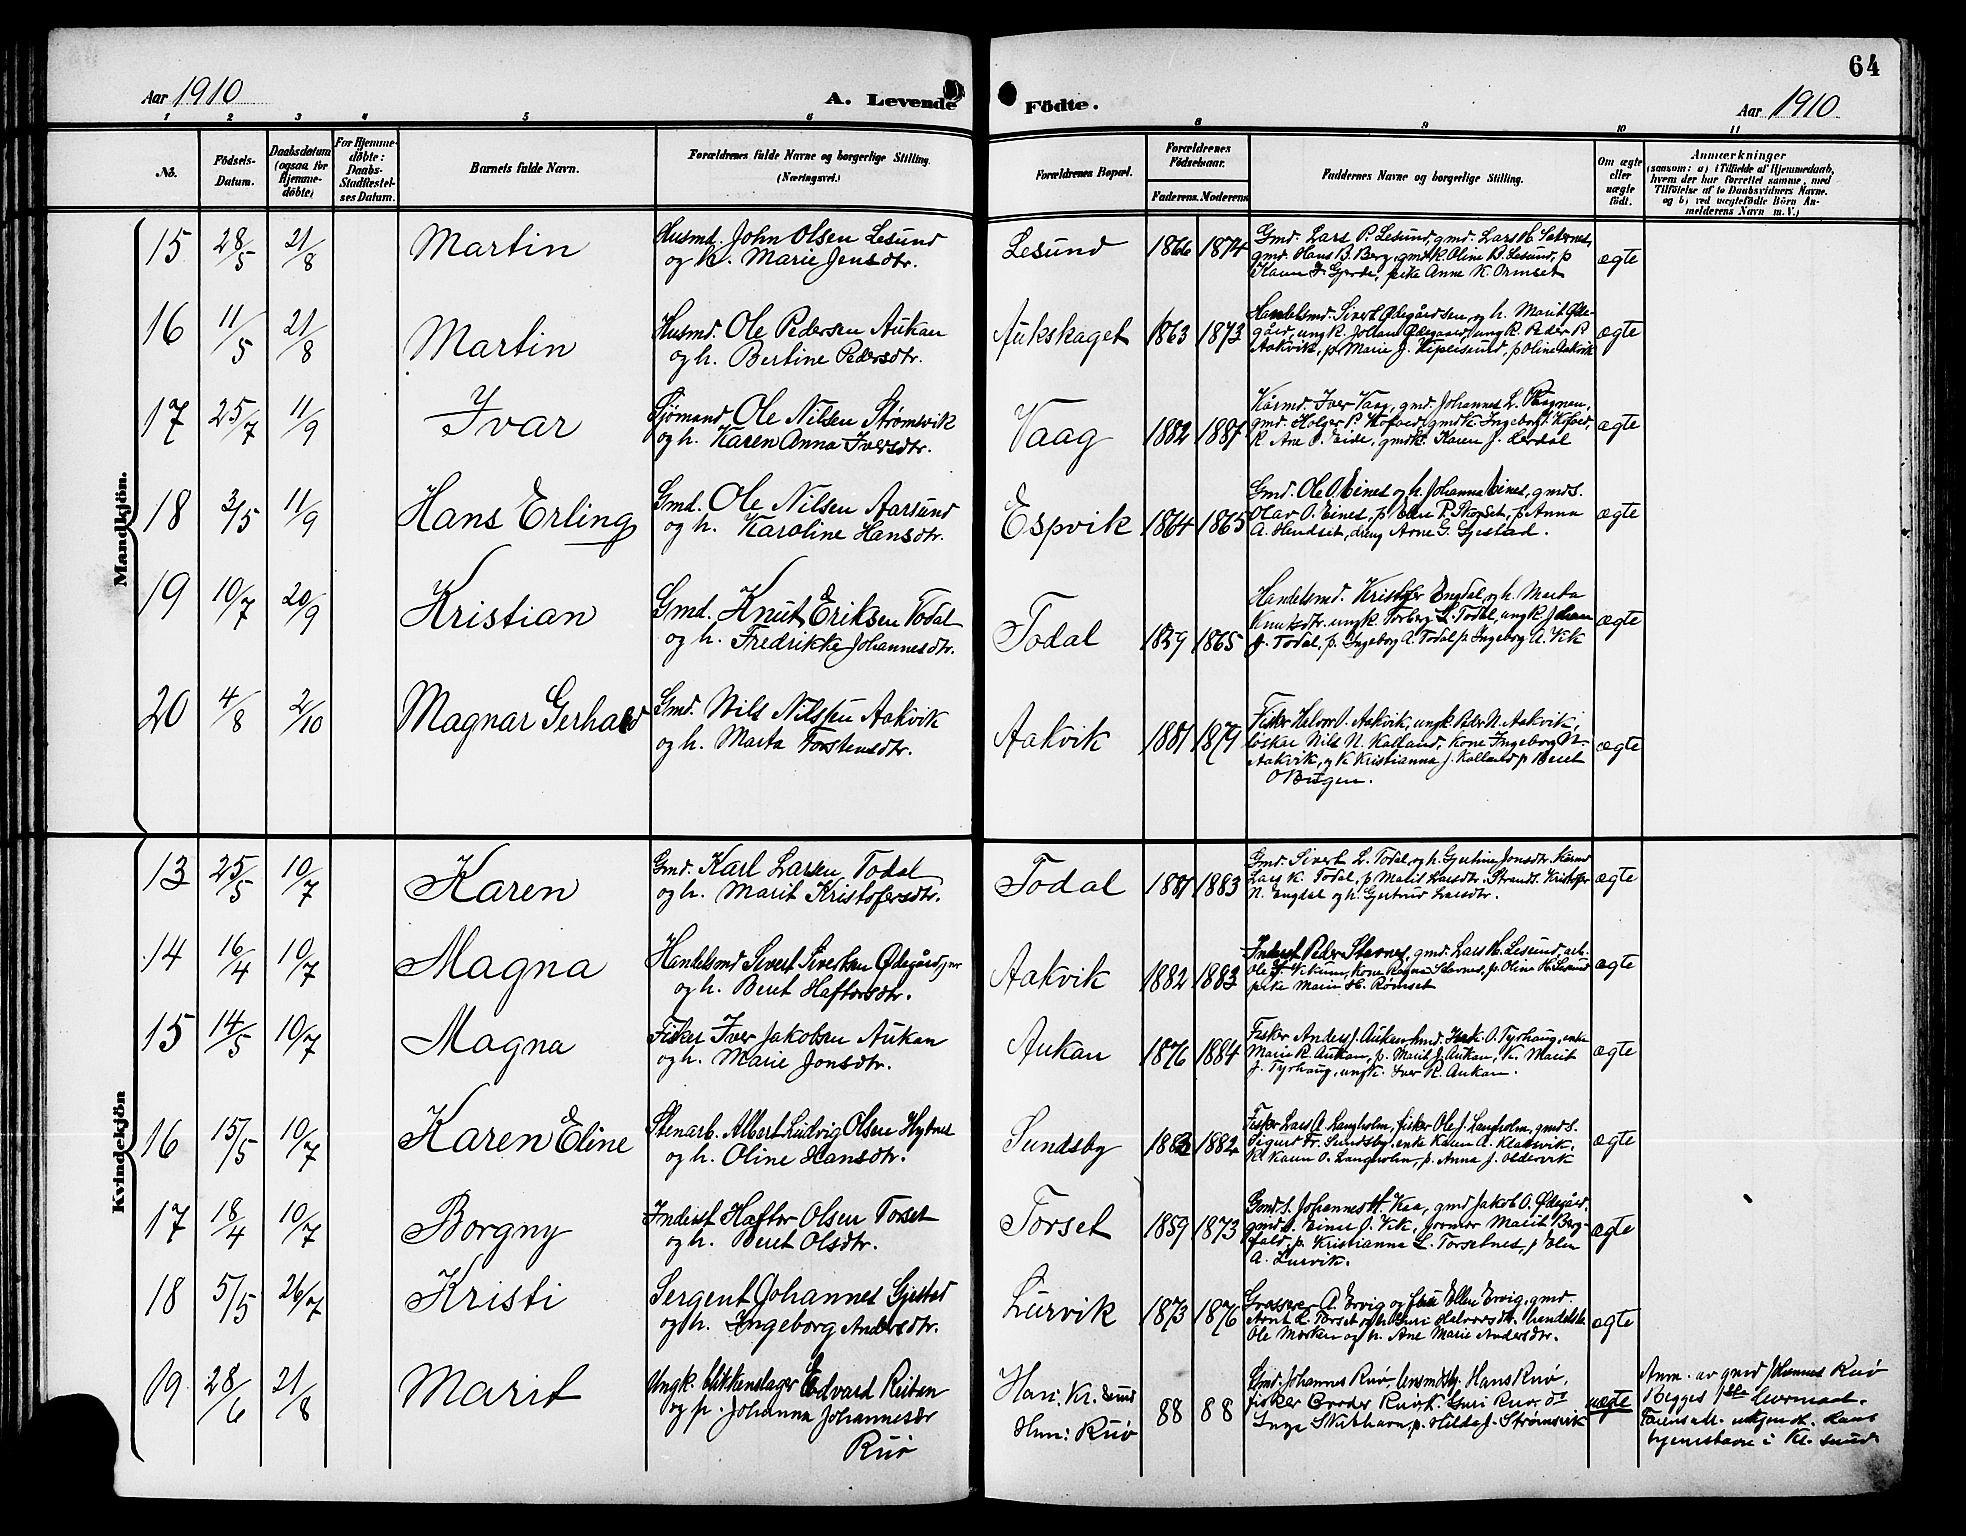 64
Aar 1910
A. Levende Födte.
Aar 1910
1 2 3 4 5 6 8 9 10 11
No.
Födsels-Datum.
Daabsdatum (ogsaa for Hjemme-döbte)
For Hjemme-döbte: Daabs-Stadfæstel-ses Datum.
Barnets fulde Navn.
Forældrenes fulde Navne og borgerlige Stilling.
(Næringsvei.)
Forældrenes Bopæl.
Forældrenes Födselsaar.
Faderens. Moderens.
Faddernes Navne og borgerlige Stilling.
Om ægte eller uægte födt.
Anmærkninger
(saasom: a) i Tilfælde af Hjemmedaab, hvem der har forrettet samme, med Tilföielse af to Daabsvidners Navne. og b) ved uægtefödte Börn An-melderens Navn m. V.)
Mandkjön.
15 28/5 21/8 Martin
Husmd. John Olsen Lesund
og h. Marie Jensdtr.
Lesund 1866 1874
Gmd. Lars P. Lesund, gmd. Lars H.
gmd. Hans B. Berg, gmdk. Oline B. Lesund, p
Karen J. Gjerde, pike Anne K. Ormset
ægte
16 11/5 21/8 Martin
Husmd. Ole Pedersen Aukan
og h. Bertine Pedersdtr.
Aukskaget 1863 1873
Handelsmd. Sivert Ødegårdsen, og h. Marit Øde-
gård, ungk. Johan Ødegaard, ungk. Peder P.
Aakvik, p. Marie J. , p Oline Aakvik
ægte
17 25/7 11/9 Ivar
Sjømand Ole Nilsen Strømsvik
og h. Karen Anna Iversdtr.
Vaag 1882 1887
Iver Vaag, gmd. Johannes L.
gmd. Holger P. Hofset, gmdk. Ingeborg Hofset,
K. Ane O. Eide, gmdk. Karen J. Lerdal
ægte
18 3/5 11/9 Hans Erling
Gmd. Ole Nilsen Aarsund
og h. Karoline Hansdtr.
Espvik 1864 1865
Gmd. Ole O. Eines og h. Johanna Eines, gmds.
Olav O. Eines, p. Elen P. , p. Anna
A. Hendset, dreng Arne G. Gjestad.
ægte
19 10/7 20/9 Kristian
Gmd. Knut Eriksen Todal
og h. Fredrikke Johannesdtr.
Todal 1859 1865
Handelsmd. Kristofer Engdal, og h. Marta
Knutsdtr. ungk. Torberg L. Todal, ungk. Johan
J. Todal, p. Ingeborg A. Todal p. Ingeborg A. Vik
ægte
20 4/8 2/10 Magnar Gerhard
Gmd. Nils Nilssen Aakvik
og h. Marta Torstensdtr.
Aakvik 1881 1879
Fisker Halvor O. Aakvik, ungk. Peder N. Aakvik,
Nils N. Kalland, kone Ingeborg N.
Aakvik, og k Kristianna J. Kalland p Beret
O Bergen.
ægte
Kvindekjön
13 25/5 10/7 Karen
Gmd. Karl Larsen Todal
og h. Marit Kristofersdtr.
Todal 1881 1883
Gmd. Sivert L. Todal, og h. Gjertine Jonsdtr.
Lars K. Todal, p Marit Larsdtr. Strands. Kristofer
N. Engdal og h. Gjertrud Larsdtr.
ægte
14 16/4 10/7 Magna
Handelsmd Sivert Sivertsen Ødegård jnr
og h. Beret Haftorsdtr.
Aakvik 1882 1883
Inderst Peder Stavnes, gmd. Lars H. Lesund, arb.
Ole J. Vikum, kone Ragna Stavnes, p. Oline H. Lesund
pike Marie H. Romset
ægte
15 14/5 10/7 Magna
Fisker Iver Jakobsen Aukan
og h. Marie Jonsdtr.
Aukan 1876 1884
Fisker Anders J. Aukan, hmd. Isak O. Tyrhaug, enke
Marie R. Aukan, p. Marit J. Aukan, k. Marit
J. Tyrhaug, ungk. Iver R. Aukan.
ægte
16 15/5 10/7 Karen Eline
Stenarb. Albert Ludvig Olsen Hytnes
og h. Oline Hansdtr.
Sundsby 1882 1882
Fisker Lars A. Langholm, fisker Ole J. Langholm, gmds.
Sigurd Fr. Sundsby, enke Karen A. Klaksvik,
K. Karen O. Langholm, p. Anna J. Oldervik
ægte
17 18/4 10/7 Borgny
Inderst Haftor Olsen Torset
og h. Beret Olsdtr.
Torset 1859 1873
Gmds. Johannes H. Kaa, gmd Jakob O. Ødegård,
gmds. Einar O. Vik, jormor Marit Berg-
fald, p. Kristianna L. Torsetnes, p Elen
A. Lurvik.
ægte
18 5/5 26/7 Kristi
Sergent Johannes Gjestad
og h. Ingeborg Andersdtr.
Lurvik 1873 1876
Grosserer A. Ervig og frue Ellen Ervig, gmd.
Arnt L. Torset og h. Guri Halvorsdtr. handelsb.
Ole Morken og h. Ane Marie Andersdtr.
ægte
19 28/6 21/8 Marit
Ungk. blikkenslager Edvard Reiten
og p. Johanna Johannesdr
Ruø
Han: Kr. sund
Hun: Ruø
88 88
Gmd. Johannes Ruø, Hans Ruø,
fisker Ruø, k. Guri Ruø, do
Inga , p. Hilda J. Strømsvik
uægte
Anm. av gmd Johannes Ruø
Begges 1ste leiermaal.
hjemstavn i Kr. sund